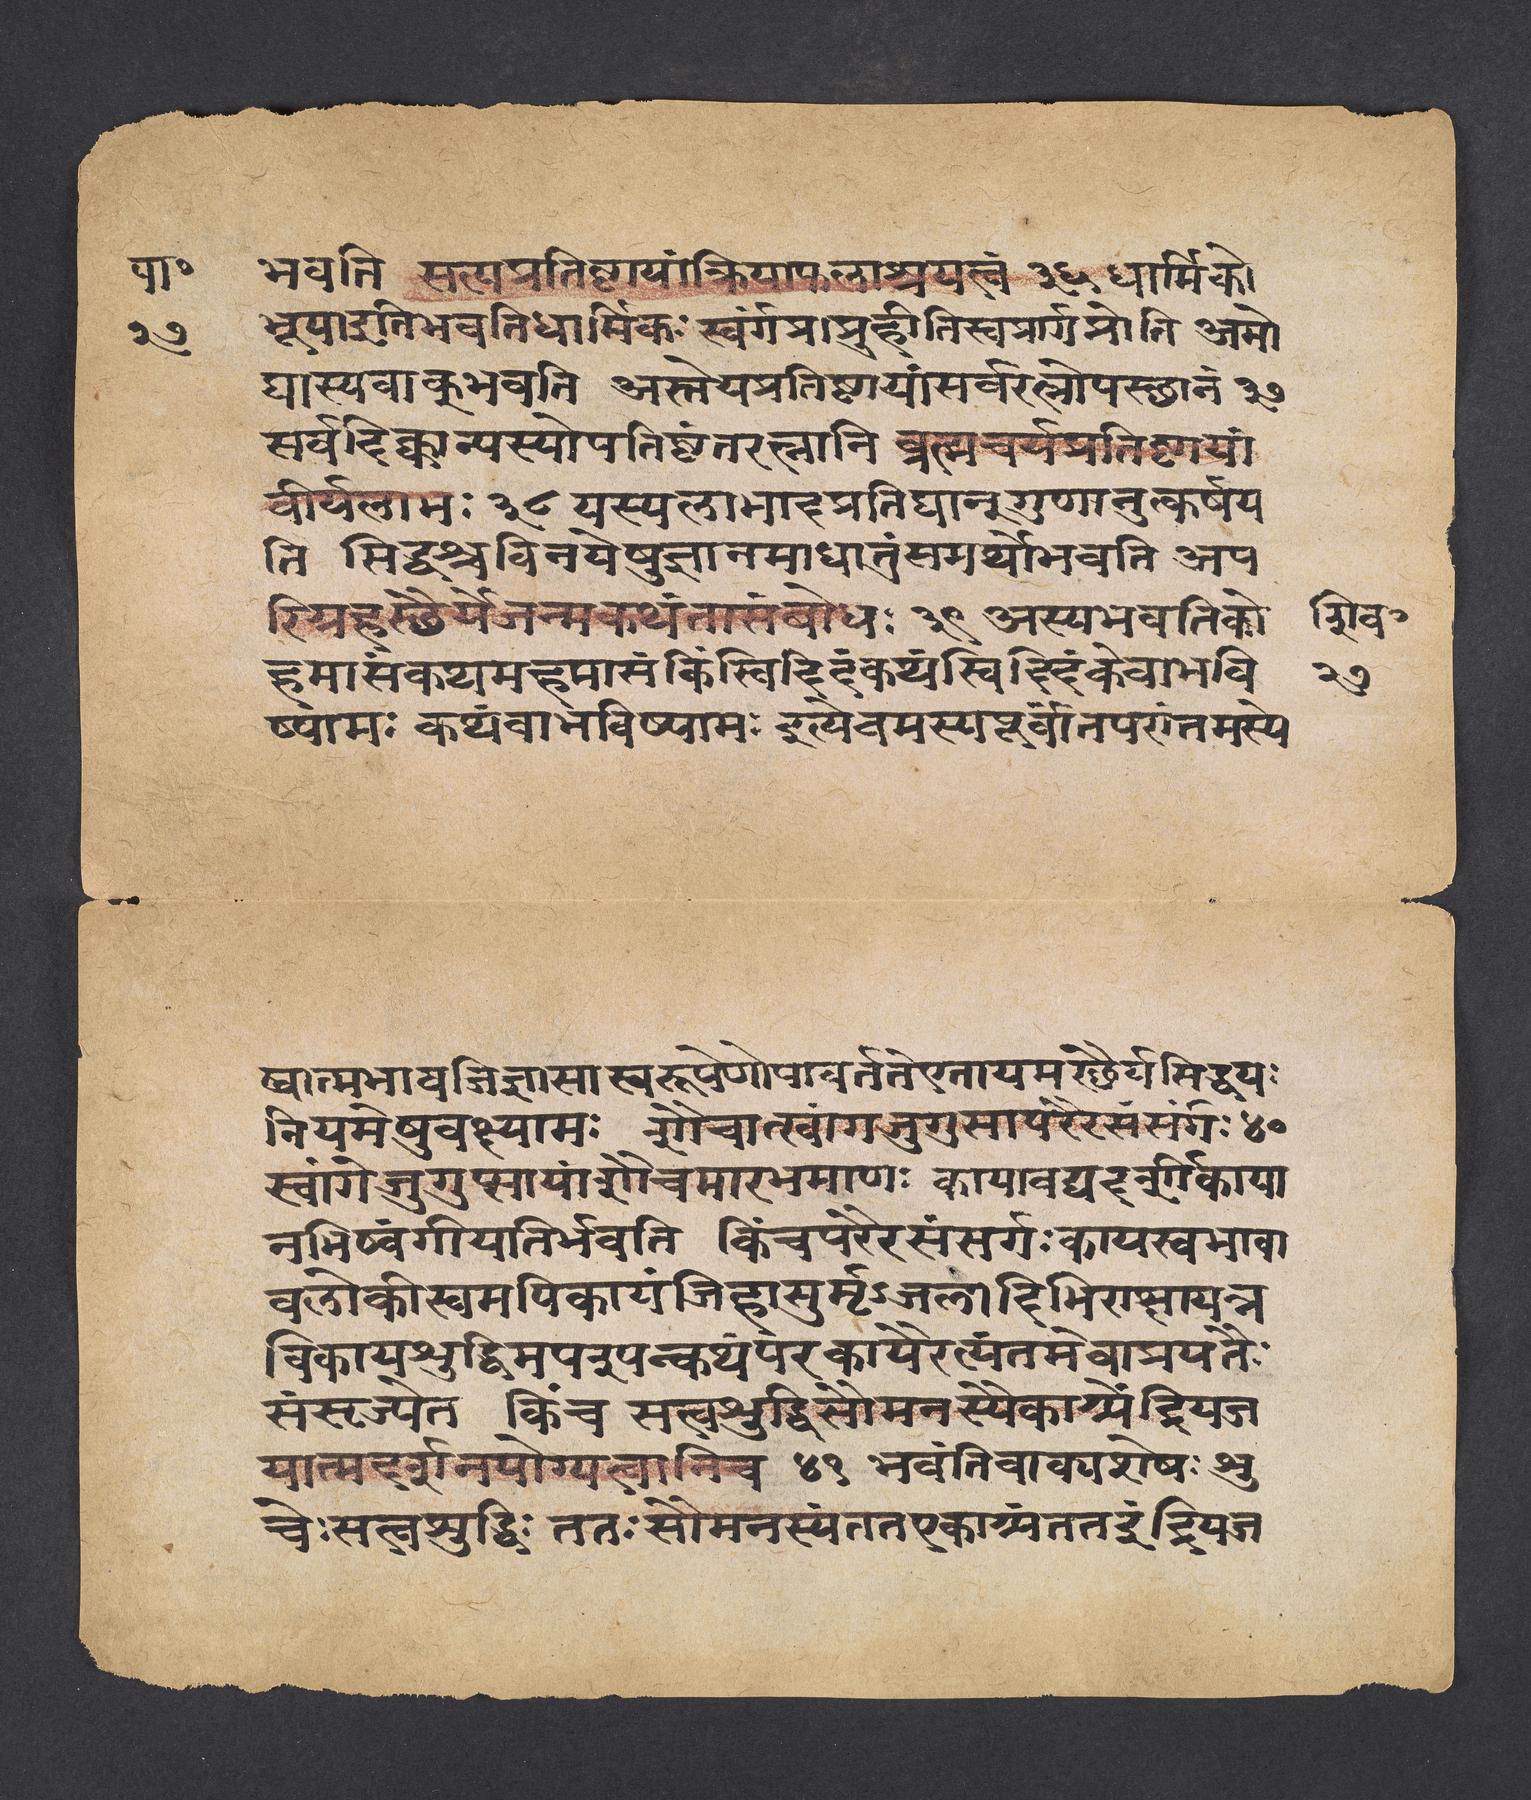 पा॰ भवति सत्यप्रतिष्ठायांक्रियाफलाश्रयत्वं ३६ धार्मिको
२७ भूयाइतिभवतिधार्मिकः स्वर्गंप्राप्नुहीतिस्वप्रार्गप्नोति अमो
घास्यवाक्भवति अस्तेयप्रतिष्ठायांसर्वरत्नोपस्छानं ३७
सर्वदिक्कान्यस्योपतिष्टंतरत्नानि ब्रह्मचर्यप्रतिष्ठायां
वीर्यलाभः ३८ यस्यलाभादप्रतिघानुगुणानुत्कर्षय
ति सिद्धश्चविनयेषुज्ञानमाधातुंसमर्थोभवति अप
रिग्रहस्छैर्येजन्मकथंतासंबोधः ३९ अस्यभवतिको शिव॰
हमासंकथमहमासं किंस्विदिदंकथंस्विदिदंकेवाभवि २७
ष्यामः कथंवाभविष्यामः इत्येवमस्यपूर्वांतपरांतमस्ये
ष्वात्मभावजिज्ञासा स्वरूपेणोपावर्त्ततेएतायमस्छैर्यसिद्धयः
नियमेषुवक्ष्यामः शौचात्स्वांगजुगुसापरैरसंसर्गः ४०
स्वांगेजुगुप्सायांशौचमारभमाणः कायावद्यदर्शीकाया
नभिष्वंगीयतिर्भवति किंचपरैरसंसर्गः कायस्वभावा
वलोकीस्वमपिकायंजिहासुर्मृऽजलादिभिराप्सायन्न
विकायशुद्धिमपशुपन्कथंपरकायैरत्यंतमेवाप्रयतैः
संसृज्येत किंच सत्त्वशुद्धिसौमनस्यैकाग्र्येंद्रियज
यात्मदर्शनयोग्यत्वानिच ४१ भवंतिवाक्यशेषः शु
चेःसत्त्वशुद्धिः ततःसौमनस्यंततएकाग्र्यंततइंद्रियज